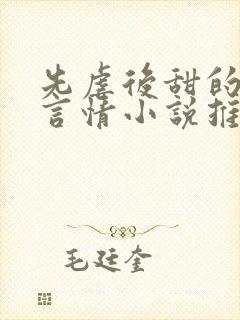 先虐後甜的
言情小説推
毛廷奎